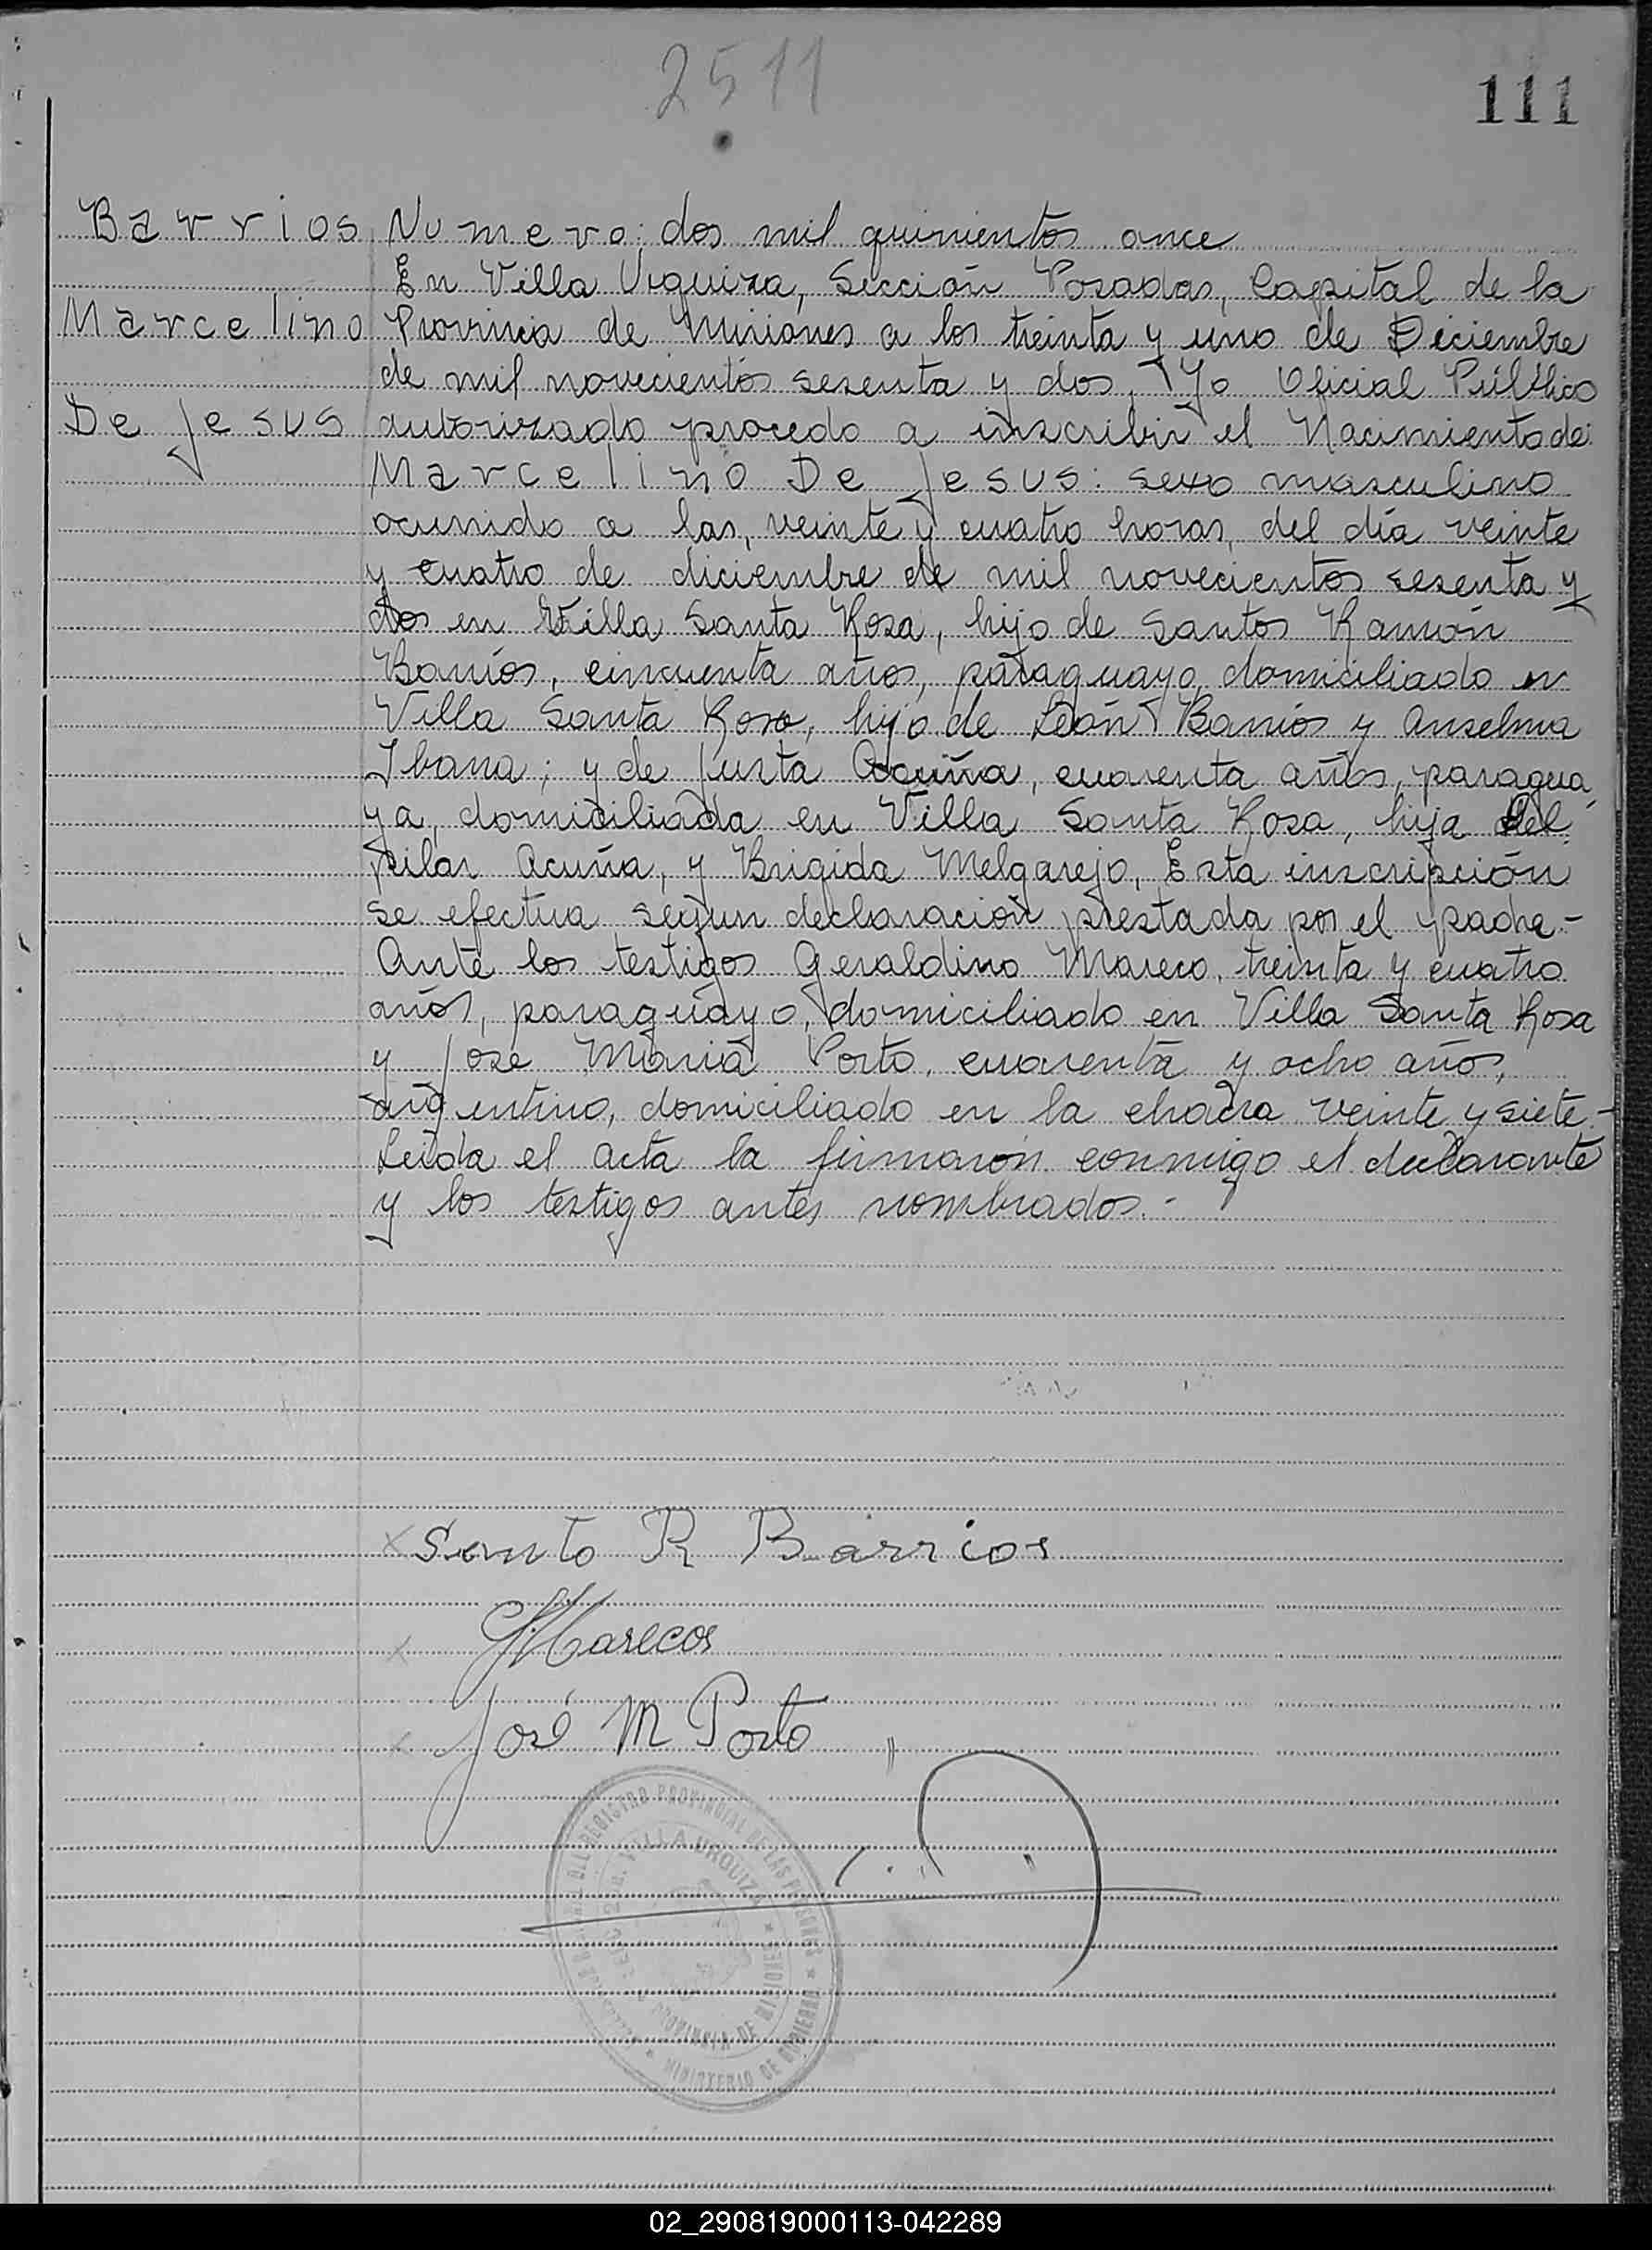 2511
111
Barrios
Marcelino
De Jesus
Numero: dos mil quinientos once
En Villa Urquiza, Sección Posadas, Capital de la
Provincia de Misiones a los treinta y uno de Diciembre
de mil novecientos sesenta y dos, Yo Oficial Público
autorizado procedo a inscribir el Nacimiento de:
Marcelino De Jesus: sexo masculino
ocurrido a las, veinte y cuatro horas, del día veinte
y cuatro de diciembre de mil novecientos sesenta y
dos en Villa Santa Rosa, hijo de Santos Ramón
Barrios, cincuenta años, paraguayo, domiciliado en
Villa Santa Rosa, hijo de León Barrios y Anselma
; y de Justa Acuña, cuarenta años, paragua
ya, domiciliada en Villa Santa Rosa, hija del
Pilar Acuña, y Brigida Melgarejo, Esta inscripción
se efectua segun declaración prestada por el padre.-
Ante los testigos Geraldino Mareco, treinta y cuatro
años, paraguayo, domiciliado en Villa Santa Rosa
y José María Porto, cuarenta y ocho años,
argentino, domiciliado en la chacra veinte y siete.-
Leida el acta la firmarón conmigo el declarante
y los testigos antes nombrados.-
x Santo R Barrios
x G Marecos
x José M Porto
REGISTRO PROVINCIAL DE LAS PERSONAS
VILLA URQUIZA
PROVINCIA DE MISIONES
MINISTERIO DE GOBIERNO
02_290819000113-042289